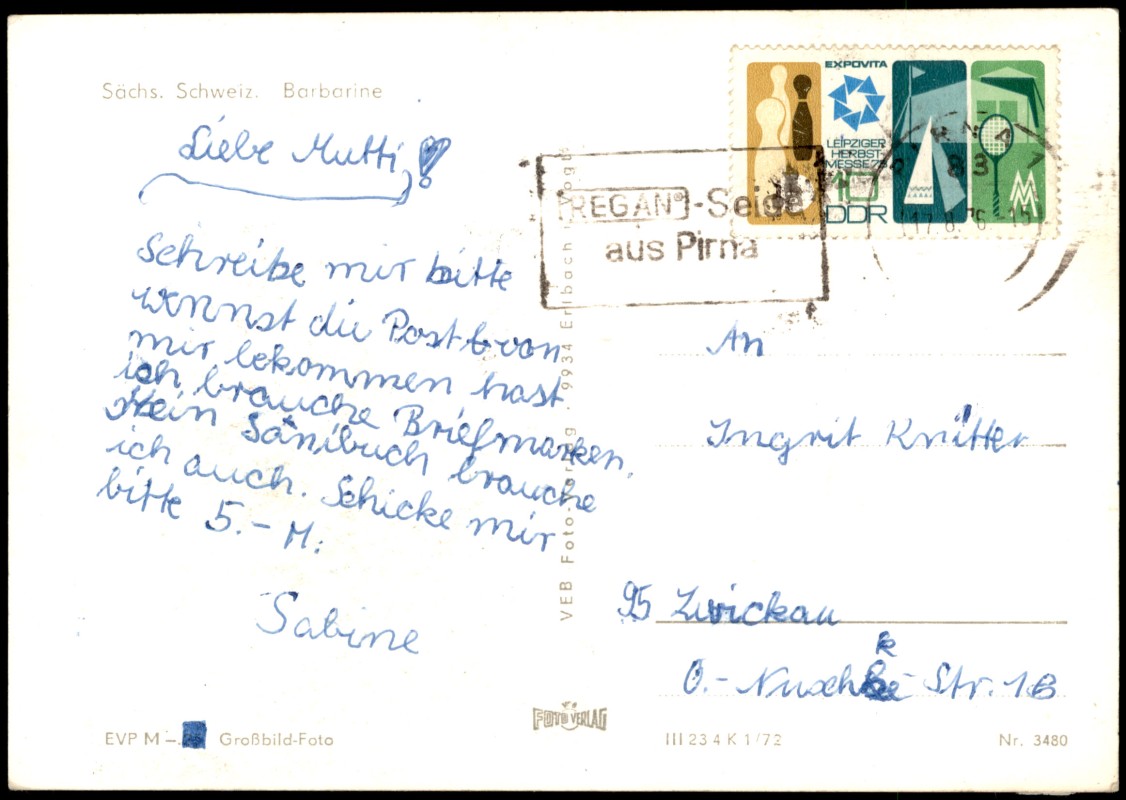 Sächs. Schweiz. Barbarine
Liebe Mutti!
Schreibe mir bitte
wennst die Post von
mir bekommen hast
ich brauche Briefmarken.
Mein Sanibuch brauche
ich auch. Schicke mir
bitte 5.- M.
Sabine
EVP M – Großbild-Foto
VEB Foto-Verlag · 9934 Erlbach i. Vogtl.
FOTO VERLAG
EXPOVITA
LEIPZIGER
HERBST-
MESSE
10
DDR
MM
REGAN-Seife
aus Pirna
PIRNA
83
17.8.76-15
An
Ingrit Knütter
95 Zwickau
k
O.-Nuschke Str. 1B
III 23 4 K 1/72
Nr. 3480